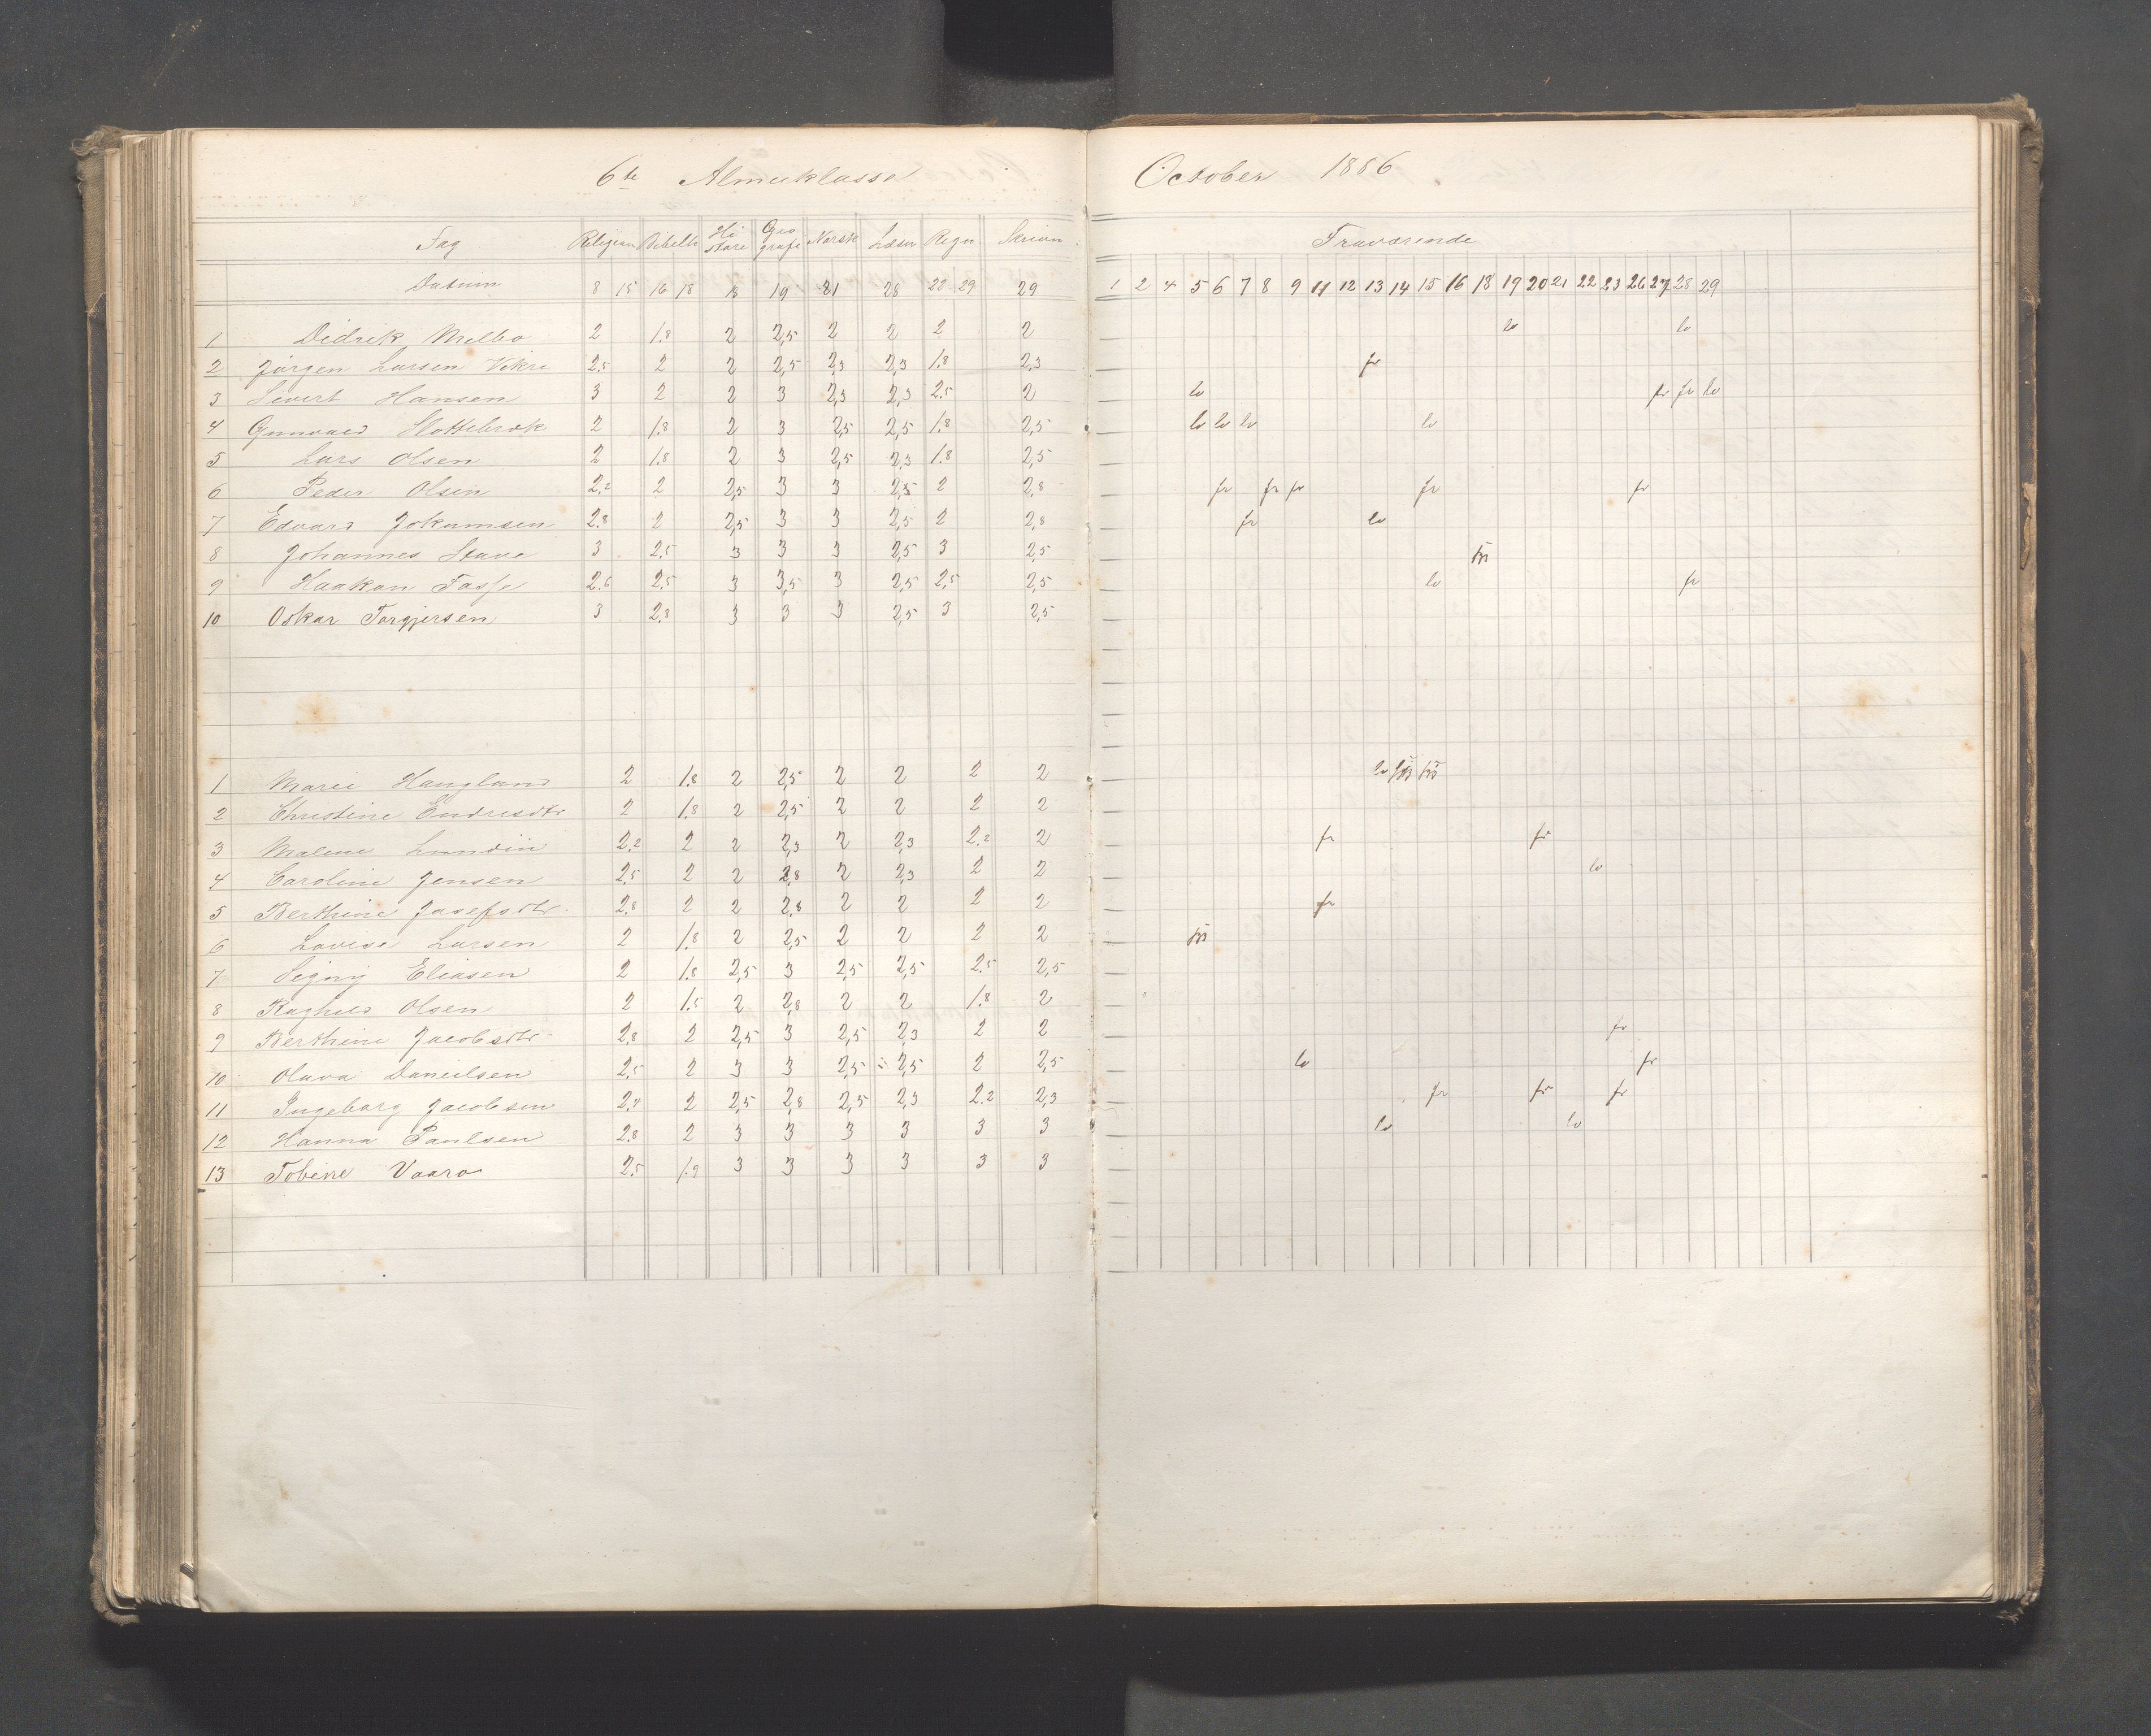 6te Almueklasse October 1886
Fag Religion Bibelh Hi storie Geo grafi Norsk Læsn Regn Skrivn Fraværende
Datum 8 15 16 18 18 19 21 28 22 29 29 1 2 4 5 6 7 8 9 11 12 13 14 15 16 18 19 20 21 22 23 26 27 28 29
1 Didrik Melbo 2 1.8 2 2,5 2 2 2 2 lo lo
2 Jørgen Larsen Vikre 2.5 2 2 2,5 2,3 2,3 1.8 2,3 fr
3 Sivert Hansen 3 2 2 3 2,3 2,3 2.5 2 lo fr fr lo
4 Gunvald Slottebrøk 2 1.8 2 3 2,5 2,5 1.8 2,5 lo lo lo lo
5 Lars Olsen 2 1.8 2 3 2,5 2,3 1.8 2,5
6 Peder Olsen 2,2 2 2,5 3 3 2,5 2 2,8 fr fr fr fr fr
7 Edvard Jokumsen 2.8 2 2,5 3 3 2,5 2 2,8 fr lo
8 Johannes Stave 3 2.5 3 3 3 2,5 3 2,5
9 Haakon Fasse 2.6 2.5 3 3,5 3 2,5 2,5 2,5 lo fr
10 Oskar Torgjersen 3 2.8 3 3 3 2,5 3 2,5
1 Marie Haugland 2 1.8 2 2,5 2 2 2 2 lo
2 Christine Endresdtr 2 1.8 2 2,5 2 2 2 2
3 Malene Lundin 2.2 2 2 2,3 2 2,3 2.2 2 fr fr
4 Caroline Jensen 2.5 2 2 2,8 2 2,3 2 2 lo
5 Berthine Josefsdtr. 2.8 2 2 2,8 2 2 2 2 fr
6 Lovise Larsen 2 1.8 2 2,5 2 2 2 2
7 Signy Eliasen 2 1.8 2,5 3 2,5 2,5 2.5 2,5
8 Raghild Olsen 2 1.5 2 2,8 2 2 1.8 2
9 Berthine Jacobsdtr 2,8 2 2,5 3 2,5 2,3 2 2 fr
10 Olava Danielsen 2.5 2 3 3 2,5 2,5 2 2,5 lo fr
11 Ingeborg Jacobsen 2,4 2 2,5 2,8 2,5 2,3 2.2 2,3 fr fr fr
12 Hanna Paulsen 2.8 2 3 3 3 3 3 3 lo lo
13 Tobine Vaaro 2.5 1.9 3 3 3 3 3 3